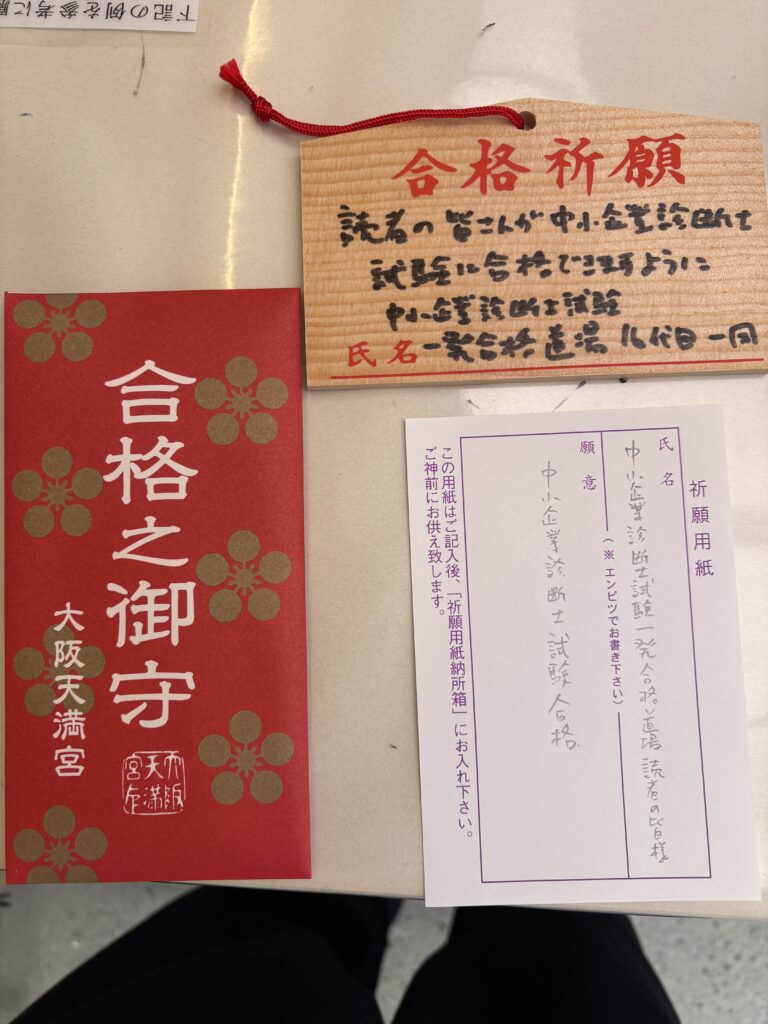 下記の例を参考に願
合格祈願
読者の皆さんが中小企業診断士
試験に合格できますように
中小企業診断士試験
氏名 一発合格道場 16代目一同
合格之御守
大阪天満宮
大阪
天満
宮印
祈願用紙
氏名
中小企業診断士試験一発合格道場 読者の皆様
(※エンピツでお書き下さい)
願意
中小企業診断士試験合格
この用紙はご記入後、「祈願用紙納所箱」にお入れ下さい。
ご神前にお供え致します。